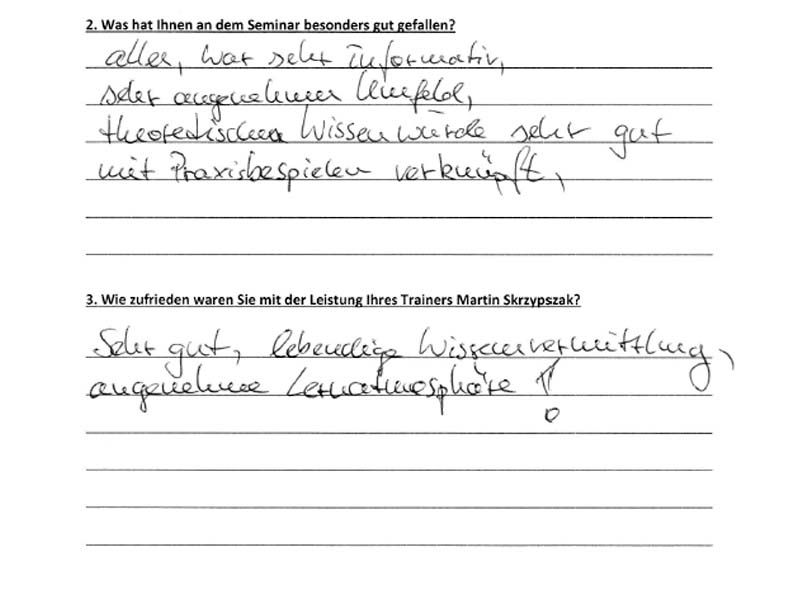 2. Was hat Ihnen an dem Seminar besonders gut gefallen?
alles, war sehr Informativ,
sehr angenehmer Umfeld,
theoretischer Wissen wurde sehr gut
mit Praxisbespielen verknüpft,
3. Wie zufrieden waren Sie mit der Leistung Ihres Trainers Martin Skrzypszak?
Sehr gut, lebendige Wissensvermittlung,
angenehme Lernatmosphäre !